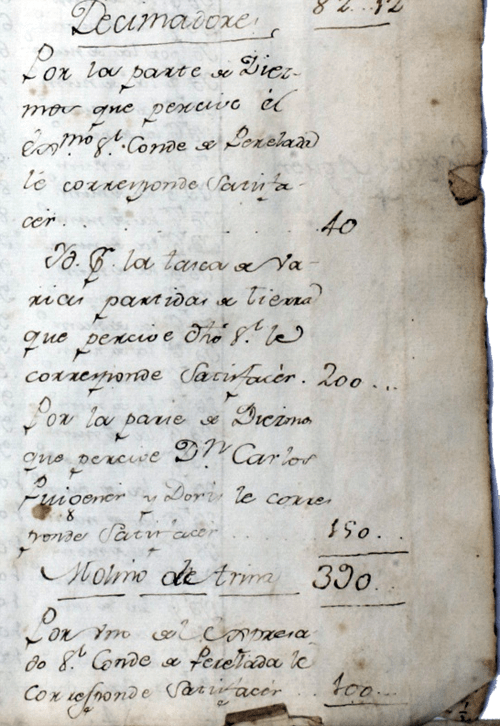 82..12
Decimadores,
Por la parte de Diez-
mos que percive el
Exᵐᵒ Sʳ. Conde de Perelada
le corresponde Satisfa-
cér . . . . . . 40
Yd. P. la tasca de Va-
rias partidas de tierra
que percive dho Sʳ le
corresponde Satisfacér . 200 ...
Por la parte de Diezmo
que percive Dⁿ Carlos
Puigener y Doris le corres
ponde Satisfacér . . . . 150...
Molino de 390..
Por uno del Expresa-
do Sʳ Conde de Perelada le
corresponde Satisfacér . . 100...